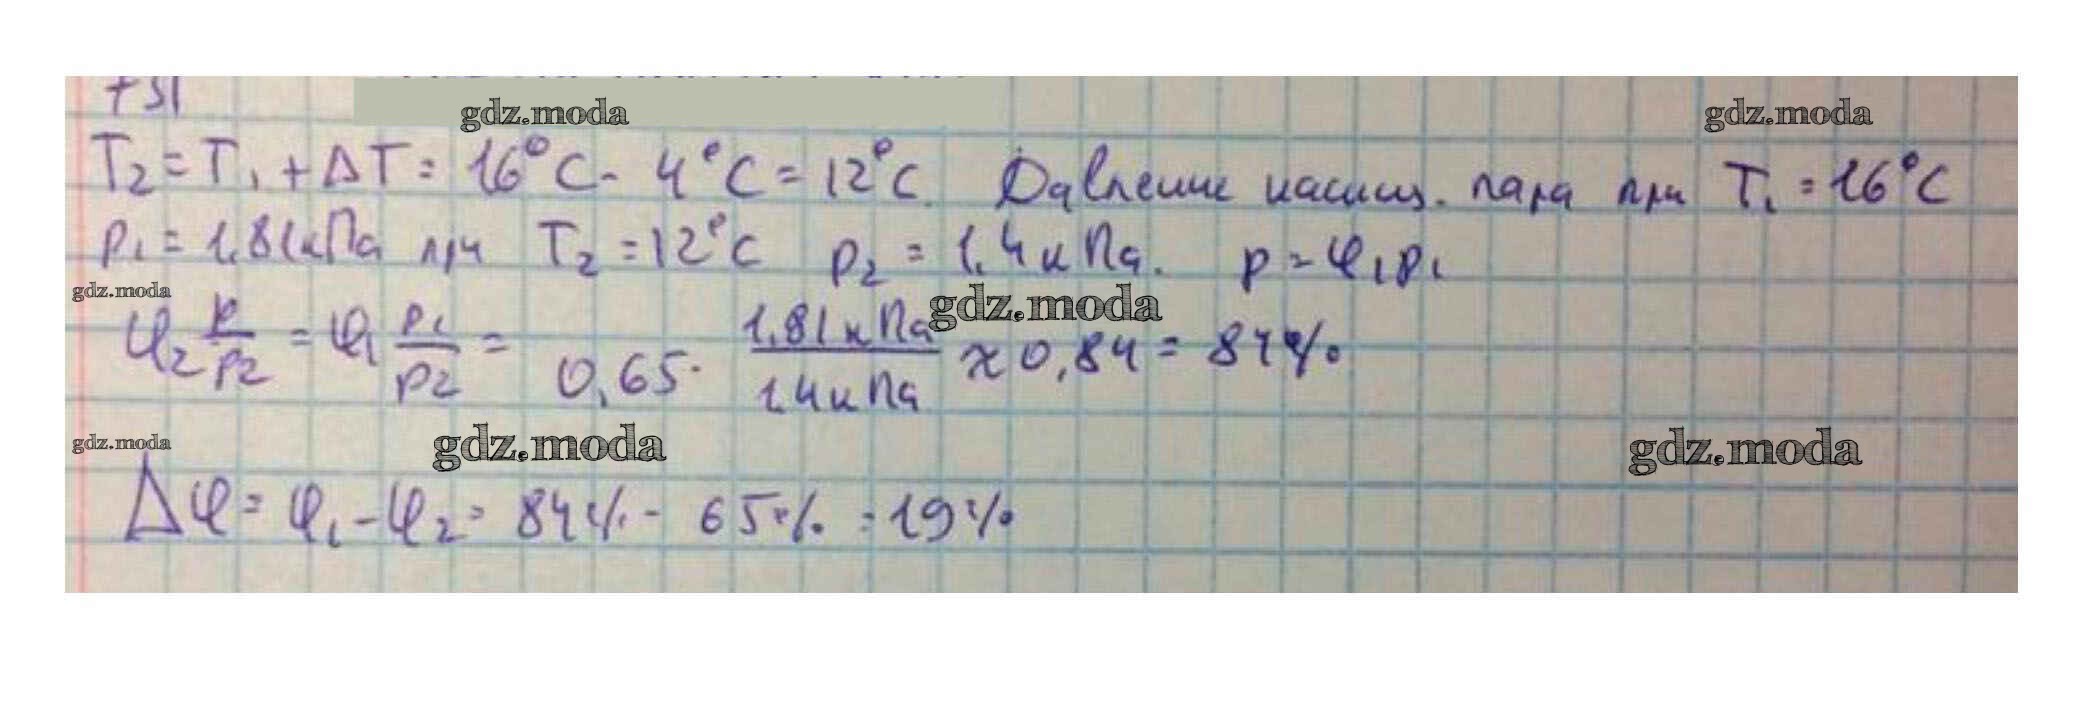 gdz.moda gdz.moda
T₂ = T₁ + ΔT = 16°C - 4°C = 12°C. Давление насыщ. пара при T₁ = 16°C
p₁ = 1,81кПа при T₂ = 12°C p₂ = 1,4кПа. p = φ₁p₁
gdz.moda gdz.moda
φ₂ p/p₂ = φ₁ p₁/p₂ = 0,65 · 1,81кПа/1,4кПа ≈ 0,84 = 84%
gdz.moda gdz.moda gdz.moda
Δφ = φ₁ - φ₂ = 84% - 65% = 19%